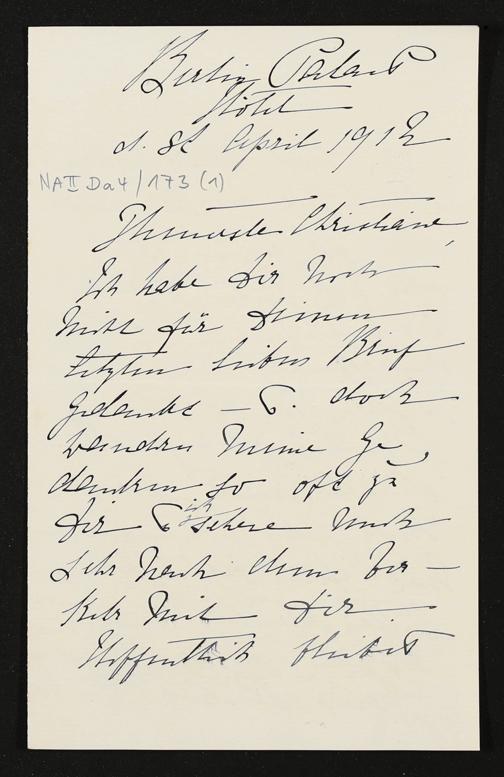 Berlin Palast
Hôtel
d. 8t April 1912
NA II Da 4/173 (1)
Theuerste Christiane,
Ich habe Dir noch
nicht für Deinen
letzten lieben Brief
gedankt – u. doch
wandern meine Ge
danken so oft zu
Dir u. ich sehne mich
sehr nach dem Ver –
kehr mit Dir
Hoffentlich bleibst